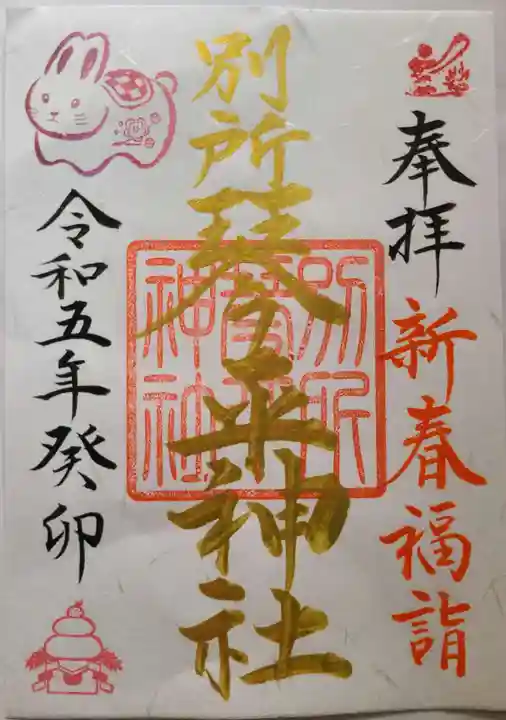 奉拝
新春福詣
別所琴平神社
別所琴平神社
令和五年癸卯